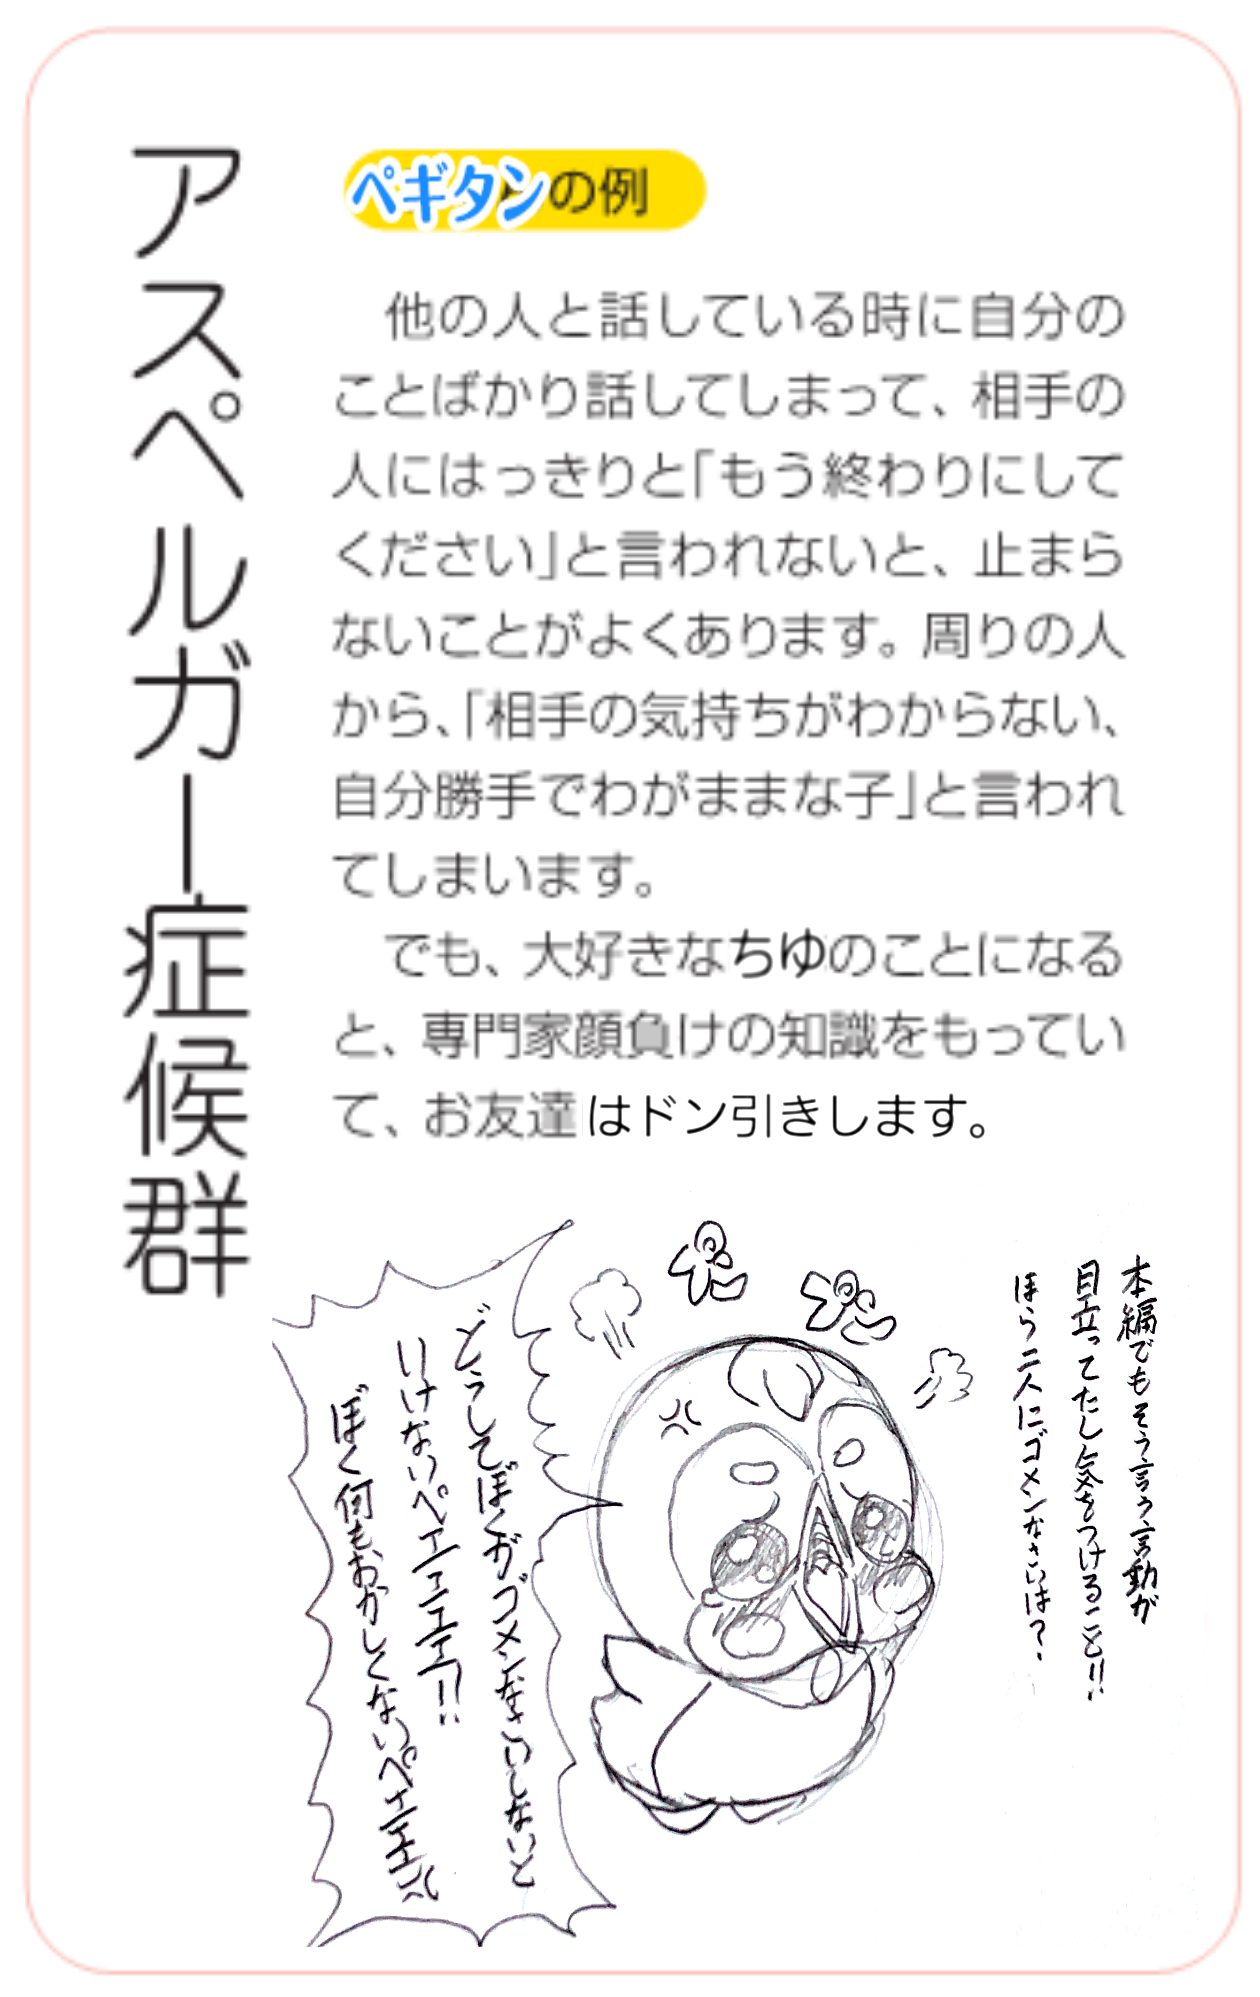 アスペルガー症候群
ペギタンの例
他の人と話している時に自分の
ことばかり話してしまって、相手の
人にはっきりと「もう終わりにして
ください」と言われないと、止まら
ないことがよくあります。周りの人
から、「相手の気持ちがわからない、
自分勝手でわがままな子」と言われ
てしまいます。
でも、大好きなちゆのことになる
と、専門家顔負けの知識をもってい
て、お友達はドン引きします。
本編でもそう言う言動が
目立ってたし気をつけること!!
ほら二人にゴメンなさいは?
どうしてぼくがゴメンなさいしないと
いけないペエエエエエ!!
ぼく何もおかしくないペエエエエ